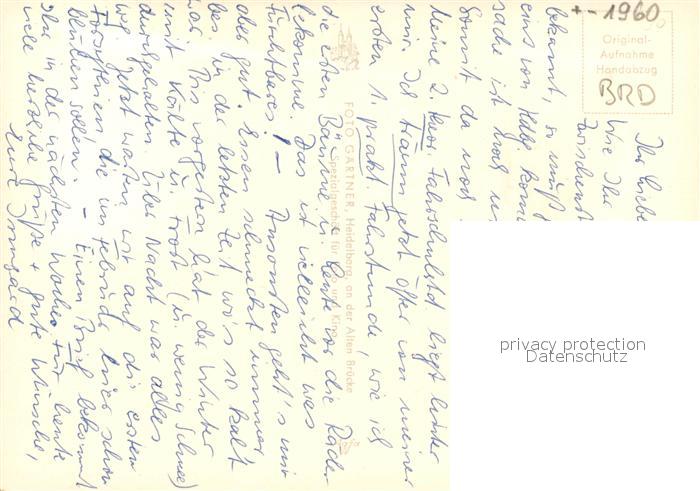 +- 1960
Original-
Aufnahme
Handabzug
BRD
Ihr Liebe
Wie Ihr
Zwischenst
bekannt, so muß
eins von Kdbg kom
sache ist
somit da noch
Meine 2. theor. Fahrschulstd liegt hinter
mir. Ich träum jetzt öfter von meiner
ersten 1. prakt. Fahrstunde, wie ich
die ersten Bäume u. Leute vor die Räder
bekomme. Das ist vielleicht was
Furchtbares! – Ansonsten geht's mir
aber gut. Essen schmeckt immer
bes. in der letzten Zeit wo's so kalt
war. Bis vorgestern hat der Winter
mit Kälte u. Frost (u. wenig Schnee)
durchgehalten. Über Nacht war alles
weg. Jetzt warten wir auf die ersten
Forsythien die im Februar hier schon
blühen sollen. – Einen Brief bekommt
Ihr in der nächsten Woche. Für heute
viele herzliche Grüße + gute Wünsche,
Eure Irmgard
FOTO GÄRTNER, Heidelberg, an der Alten Brücke
Spezialgeschäft für Foto und Kino
Agfa
privacy protection
Datenschutz